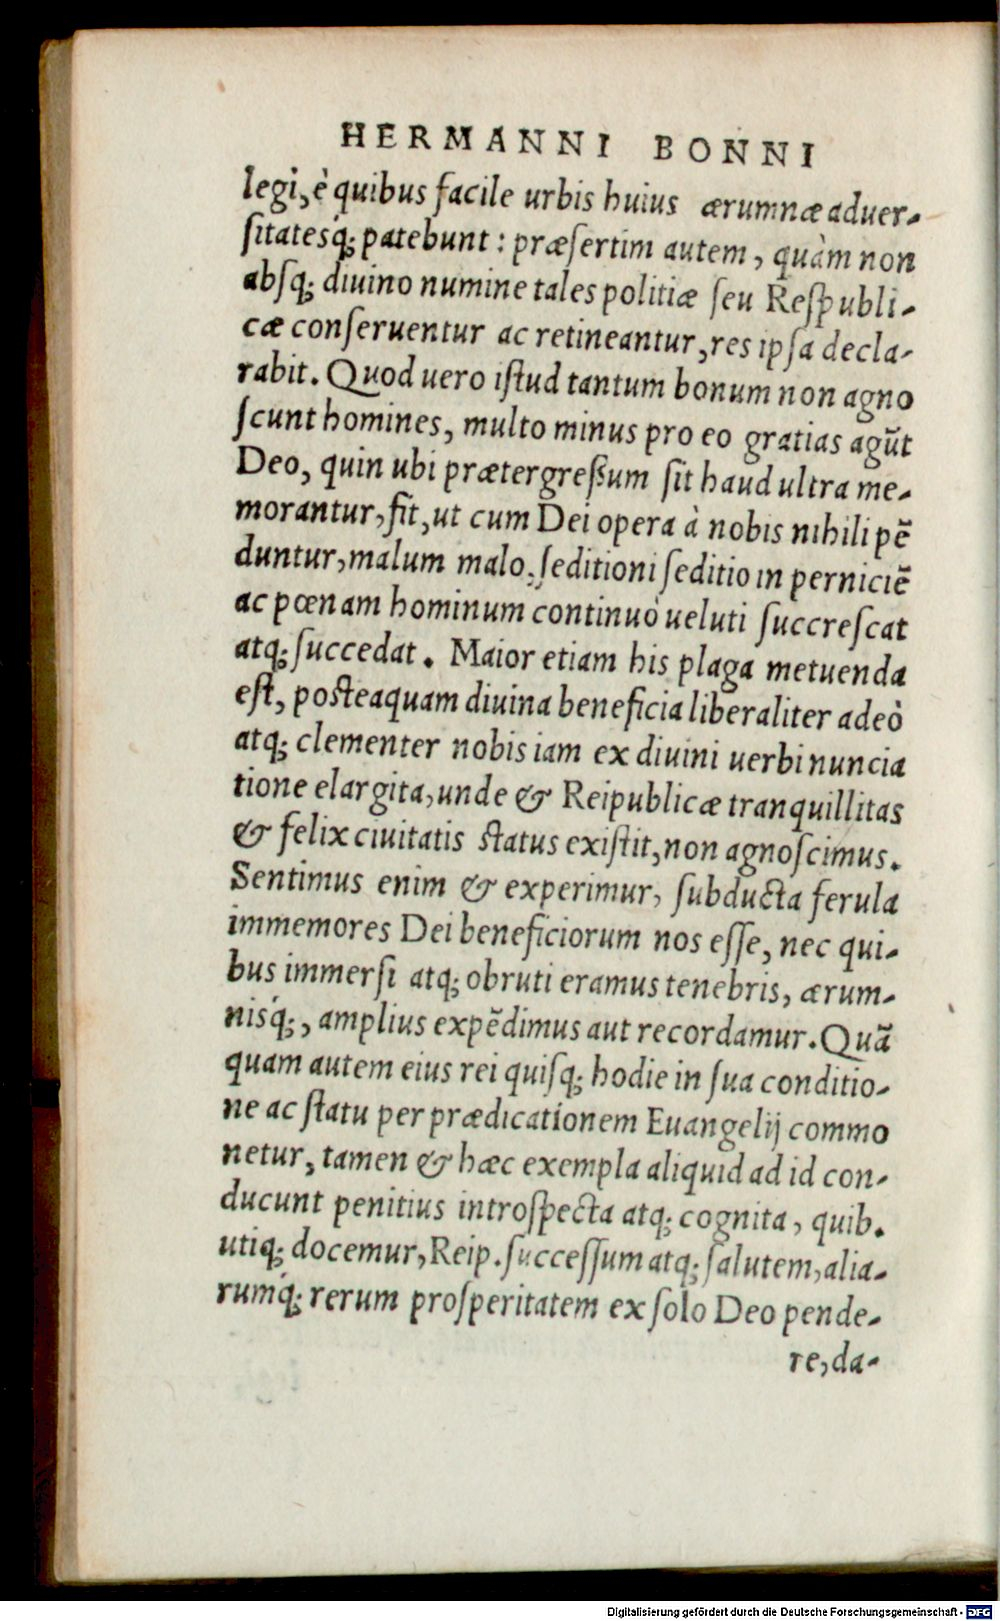 HERMANNI BONNI
legi, è quibus facile urbis huius ærumnæ aduer-
ſitatesq́; patebunt : præſertim autem, quàm non
abſq; diuino numine tales politiæ ſeu Reſpubli-
cæ conſeruentur ac retineantur, res ipſa decla-
rabit. Quod uero iſtud tantum bonum non agno
ſcunt homines, multo minus pro eo gratias agũt
Deo, quin ubi prætergreßum ſit haud ultra me-
morantur, fit, ut cum Dei opera à nobis nihili pẽ
duntur, malum malo, ſeditioni ſeditio in perniciẽ
ac pœnam hominum continuò ueluti ſuccreſcat
atq; ſuccedat. Maior etiam his plaga metuenda
eſt, poſteaquam diuina beneficia liberaliter adeò
atq; clementer nobis iam ex diuini uerbi nuncia
tione elargita, unde & Reipublicæ tranquillitas
& felix ciuitatis ſtatus exiſtit, non agnoſcimus.
Sentimus enim & experimur, ſubducta ferula
immemores Dei beneficiorum nos eſſe, nec qui-
bus immerſi atq; obruti eramus tenebris, ærum-
nisq́;, amplius expẽdimus aut recordamur. Quã
quam autem eius rei quiſq; hodie in ſua conditio-
ne ac ſtatu per prædicationem Euangelij commo
netur, tamen & hæc exempla aliquid ad id con-
ducunt penitius introſpecta atq; cognita, quib.
utiq; docemur, Reip. ſucceſſum atq; ſalutem, alia-
rumq́; rerum proſperitatem ex ſolo Deo pende-
re, da-
Digitalisierung gefördert durch die Deutsche Forschungsgemeinschaft - DFG